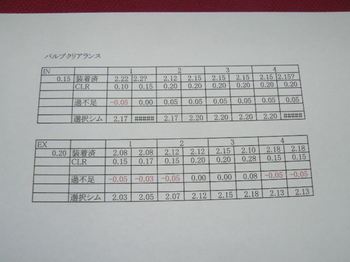 バルブクリアランス
IN 1 2 3 4
0.15 装着済 2.22 2.2? 2.12 2.15 2.15 2.15 2.15 2.15?
CLR 0.10 0.15 0.20 0.20 0.20 0.20 0.20 0.20
過不足 -0.05 0.00 0.05 0.05 0.05 0.05 0.05 0.05
選択シム 2.17 ##### 2.17 2.20 2.20 2.20 2.20 #####
EX 1 2 3 4
0.20 装着済 2.08 2.08 2.12 2.12 2.15 2.10 2.18 2.18
CLR 0.15 0.17 0.15 0.20 0.20 0.28 0.15 0.15
過不足 -0.05 -0.03 -0.05 0.00 0.00 0.08 -0.05 -0.05
選択シム 2.03 2.05 2.07 2.12 2.15 2.18 2.13 2.13